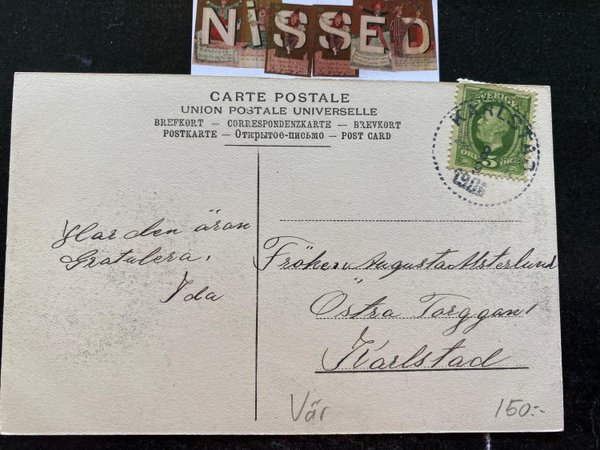 NiSSEO
CARTE POSTALE
UNION POSTALE UNIVERSELLE
BREFKORT — CORRESPONDENZKARTE — BREVKORT
POSTKARTE — Открытое-письмо — POST CARD
SVERIGE
5
KARLSTAD
Har den äran
Gratulera,
Ida
Fröken Augusta Alsterlund
Östra Torggan
Karlstad
Vär
150:-